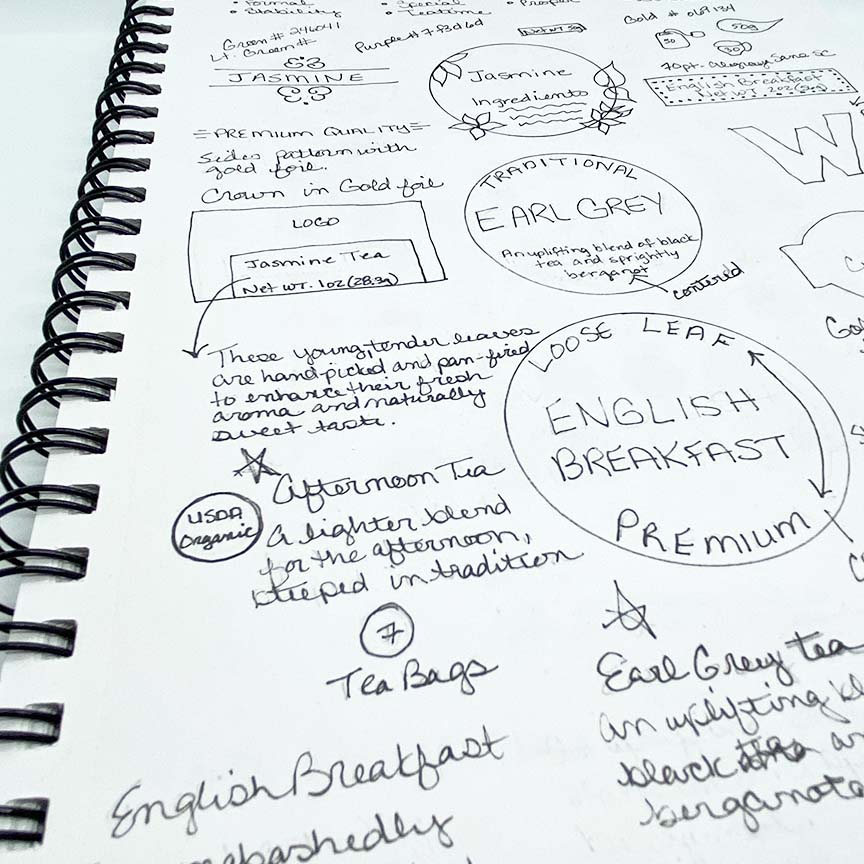 • Formal
• Stability
• Special
• Teatime
• Proper
Green # 246041
Lt. Green #
Purple # 7f3d6d
Net wt 3g
Gold #
50
50g
30
JASMINE
Jasmine
Ingredients
English Breakfast
Net WT. 2oz (56g)
=PREMIUM QUALITY=
Sides pattern with
gold foil.
Crown in Gold foil
W
LOGO
Jasmine Tea
Net WT. 1oz (28.3g)
TRADITIONAL
EARL GREY
An uplifting blend of black
tea and sprightly
bergamot
centered
These young, tender leaves
are hand-picked and pan-fired
to enhance their fresh
aroma and naturally
sweet taste.
LOOSE LEAF
ENGLISH
BREAKFAST
PREMIUM
USDA
Organic
Afternoon Tea
A lighter blend
for the afternoon,
steeped in tradition
7
Tea Bags
Earl Grey tea
an uplifting bl
black
bergamote
English Breakfast
nabashedly